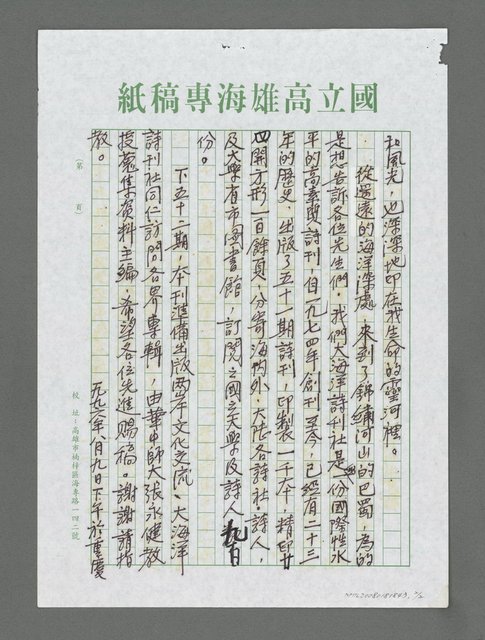 國立高雄海專稿紙
和風光，也深深地印在我生命的靈河裡。
從遙遠的海洋深處，來到了錦繡河山的巴蜀，為的
是想告訴各位先生們。我們大海洋詩刊社是一份國際性水
平的高素質詩刊，自一九七四年創刊至今，已經有二十三
年的歷史，出版了五十一期詩刊，印製一千本，精印廿
四開方形，一百餘頁，分寄海內外、大陸各詩社、詩人，
及大學省市圖書館，訂閱之國立大學及詩人九百
份。
下五十二期，本刊準備出版兩岸文化交流、大海洋
詩刊社同仁訪問各界專輯，由華中師大張永健教
授蒐集資料主編，希望各位先進賜稿。謝謝請指
教。
一九九六、八月九日下午於重慶
（第 頁）
校 址：高雄市楠梓區海專路一四二號